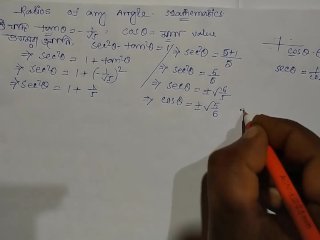 Ratios of any Angle Mathematics
tanθ = - cosθ = value
sec²θ - tan²θ = 1
⇒ sec²θ = 1 + tan²θ
⇒ sec²θ = 1 + (-1/√5)²
⇒ sec²θ = 1 + 1/5
⇒ sec²θ = 5+1/5
⇒ sec²θ = 6/5
⇒ secθ = ±√6/5
⇒ cosθ = ±√5/6
cosθ
secθ = 1/cos